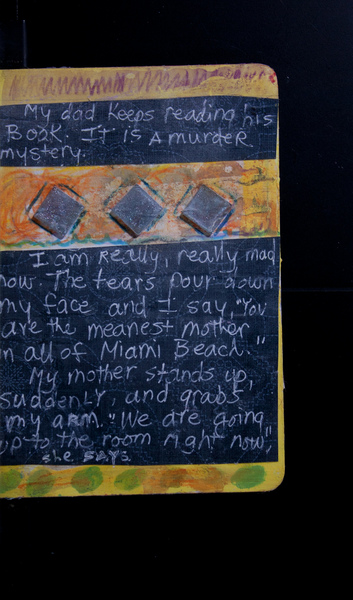 My dad keeps reading his
Book. It is a murder
mystery.
I am Really, really mad
now. The tears pour down
my face and I say, "You
are the meanest mother
in all of Miami Beach."
My mother stands up,
suddenly, and grabs
my arm. "We are going
up to the room right now,"
she says